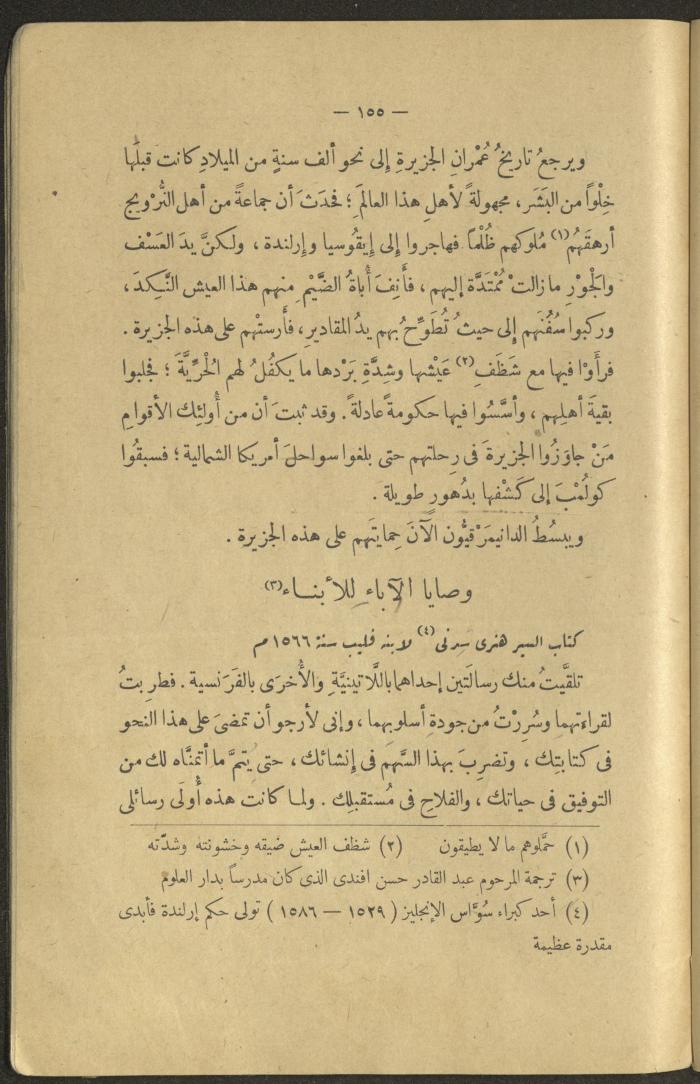 — ١٥٥ —
ويرجعُ تاريخُ عُمْرانِ الجزيرةِ إلى نحو ألف سنةٍ من الميلادِ كانت قبلَها
خِلْواً من البَشَر ، مجهولةً لأهلِ هذا العالَمِ ؛ فحدَثَ أن جماعةً من أهل النُّرْويج
أرهقَهُمْ (١) مُلوكهم ظُلْماً فهاجروا إلى إيقُوسيا وإرلندة ، ولكنَّ يدَ العَسْف
والجْوْرِ ما زالتْ مُمْتَدَّة إليهم ، فأَنِفَ أُباةُ الضَّيْمِ منهم هذا العيش النَّكِدَ ،
وركبوا سُفُنَهم إلى حيثُ تُطَوِّحُ بهم يدُ المقاديرِ ، فأَرستْهم على هذه الجزيرة .
فرأَوْا فيها مع شَظَفِ (٢) عَيْشها وشِدَّةِ بَرْدها ما يكفُلُ لهم الحُرِّيَّةَ ؛ فجلبوا
بقيةَ أهلِهم ، وأسَّسُوا فيها حكومةً عادلةً . وقد ثبتَ أن من أُولئِك الأقوامِ
مَنْ جاوَزُوا الجزيرةَ فى رِحلتهم حتى بلغوا سواحلَ أمريكا الشمالية ؛ فسبقُوا
كولُمْبَ إلى كَشْفها بدُهورٍ طويلة .
ويبسُطُ الدانيمَرْقيُّون الآنَ حِمايتَهم على هذه الجزيرة .
وصايا الآباءِ للأبناء (٣)
كتاب السير هنرى سِدنى (٤) لابنه فليب سنة ١٥٦٦ م
تلقَّيتُ منك رسالتَين إحداهما باللَّاتينيَّةِ والأُخرَى بالفَرَنسية . فطرِبتُ
لقراءتهما وسُرِرْتُ من جودةِ أسلوبهما ، وإنى لأرجو أن تمضىَ على هذا النحو
فى كتابتِك ، وتضرِبَ بهذا السَّهمِ فى إنشائك ، حتى يُتمَّ ما أتمنَّاه لك من
التوفيق فى حياتك ، والفلاحِ فى مُستقبلِك . ولما كانت هذه أُولَى رسائلى
(١) حمَّلوهم ما لا يطيقون (٢) شظف العيش ضيقه وخشونته وشدّته
(٣) ترجمة المرحوم عبد القادر حسن افندى الذى كان مدرساً بدار العلوم
(٤) أحد كبراء سُوَّاس الإنجليز ( ١٥٢٩ — ١٥٨٦ ) تولى حكم إرلندة فأبدى
مقدرة عظيمة